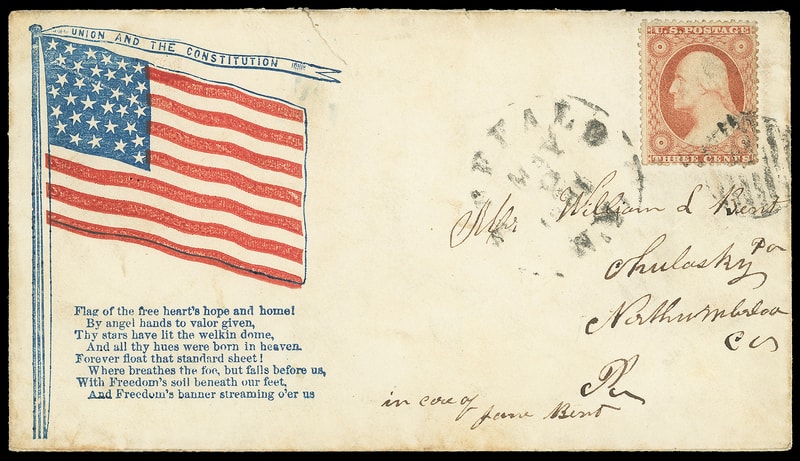 UNION AND THE CONSTITUTION
U.S. POSTAGE
THREE CENTS
Flag of the free heart's hope and home!
By angel hands to valor given,
Thy stars have lit the welkin dome,
And all thy hues were born in heaven.
Forever float that standard sheet!
Where breathes the foe, but falls before us,
With Freedom's soil beneath our feet,
And Freedom's banner streaming o'er us
BUFFALO
N.Y.
Mr William L Bent
Pa
Northumberland
Co
Pa
in care of Jane Bent